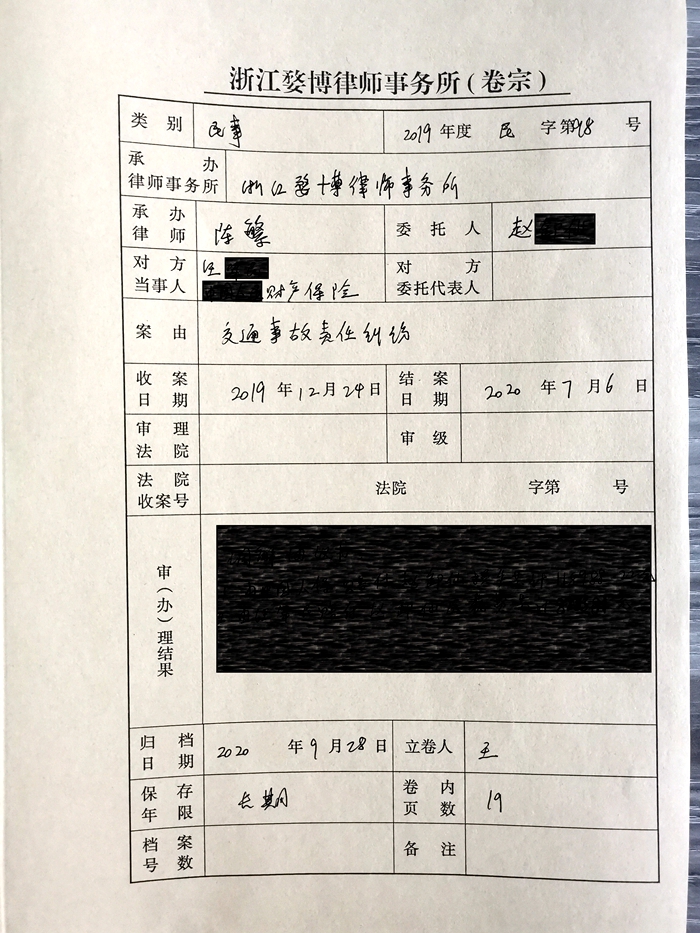 浙江婺博律师事务所(卷宗)
类 别 民事 2019 年度 民 字第98 号
承 办
律师事务所 浙江婺博律师事务所
承 办
律 师 陈繁 委 托 人 赵
对 方 汪 对 方
当事人 财产保险 委托代表人
案 由 交通事故责任纠纷
收 案 结 案
日 期 2019 年12月24日 日 期 2020 年7月6日
审 理
法 院 审 级
法 院
收案号 法院 字第 号
审(办)理结果
归 档
日 期 2020 年9月28日 立卷人 王
保 存 卷 内
年 限 长期 页 数 19
档 案
号 数 备 注